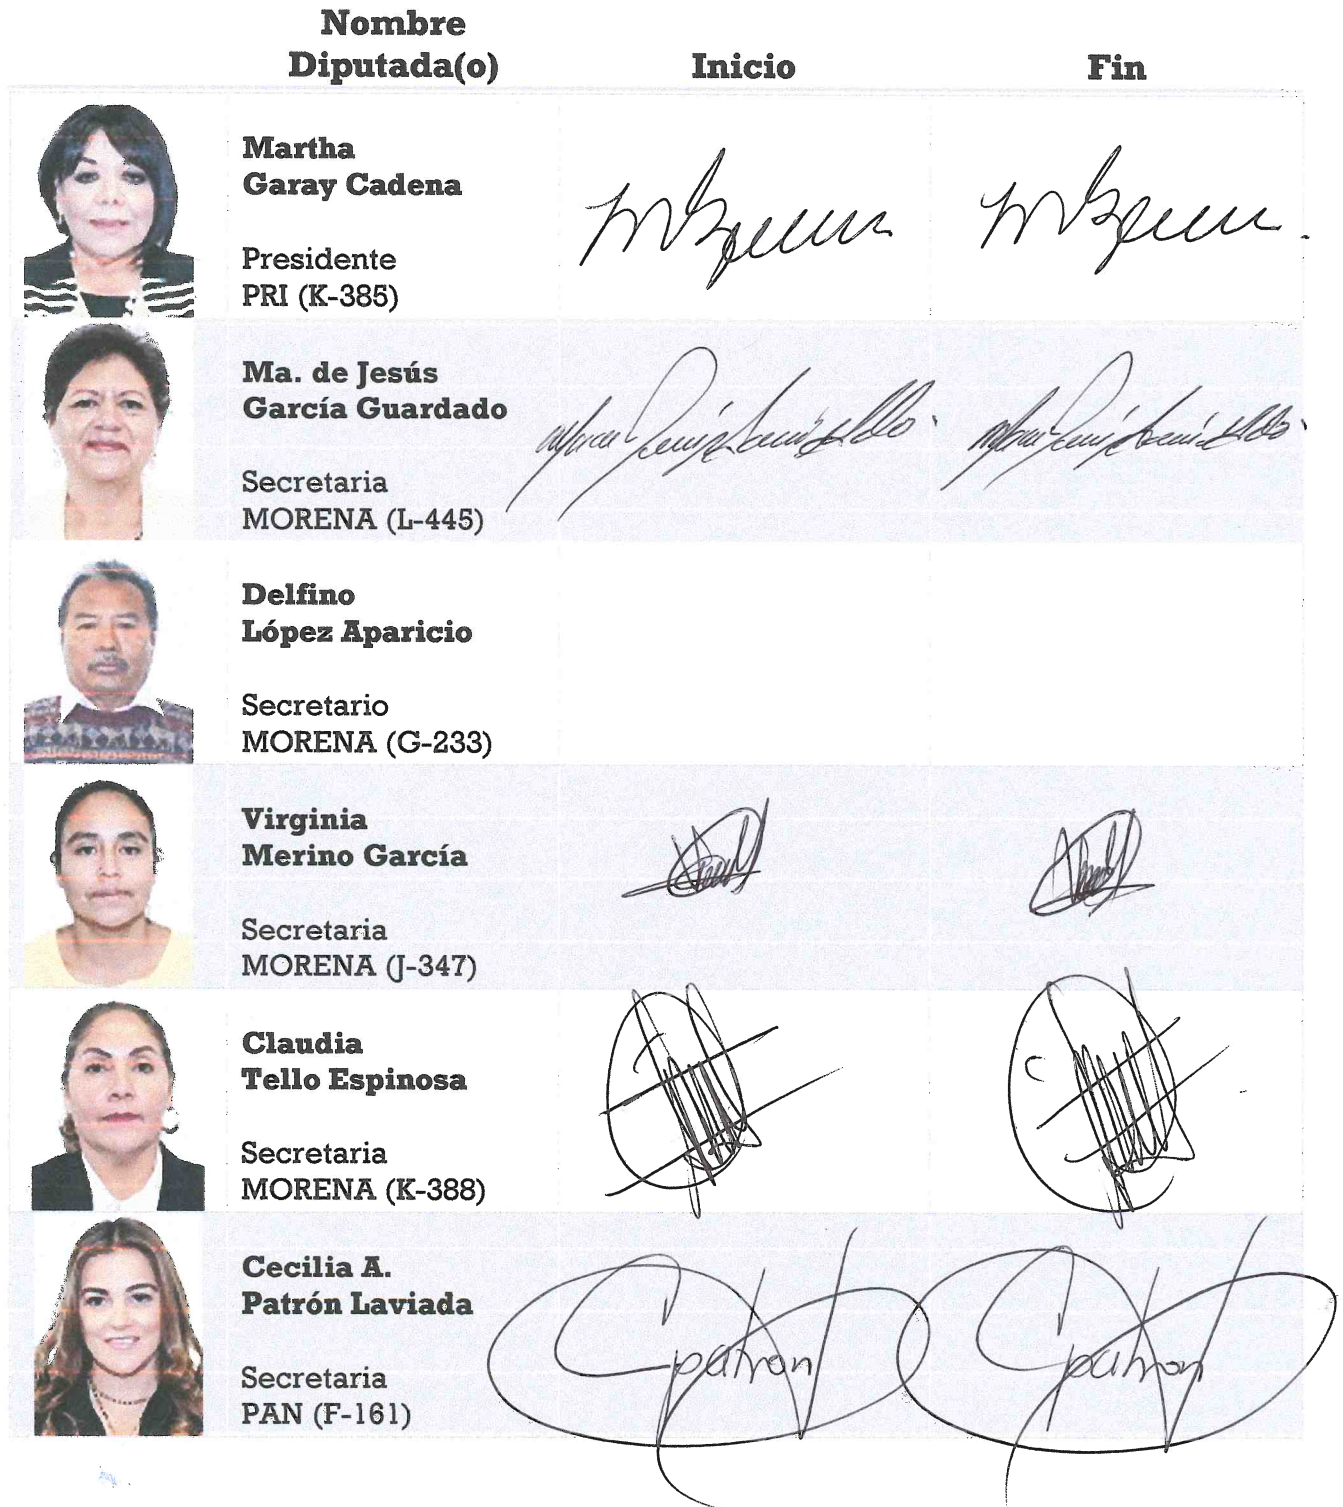 Nombre
Diputada(o)
Inicio
Fin
Martha
Garay Cadena
Presidente
PRI (K-385)
Ma. de Jesús
García Guardado
Secretaria
MORENA (L-445)
Delfino
López Aparicio
Secretario
MORENA (G-233)
Virginia
Merino García
Secretaria
MORENA (J-347)
Claudia
Tello Espinosa
Secretaria
MORENA (K-388)
Cecilia A.
Patrón Laviada
Secretaria
PAN (F-161)
Cpatron
Cpatron